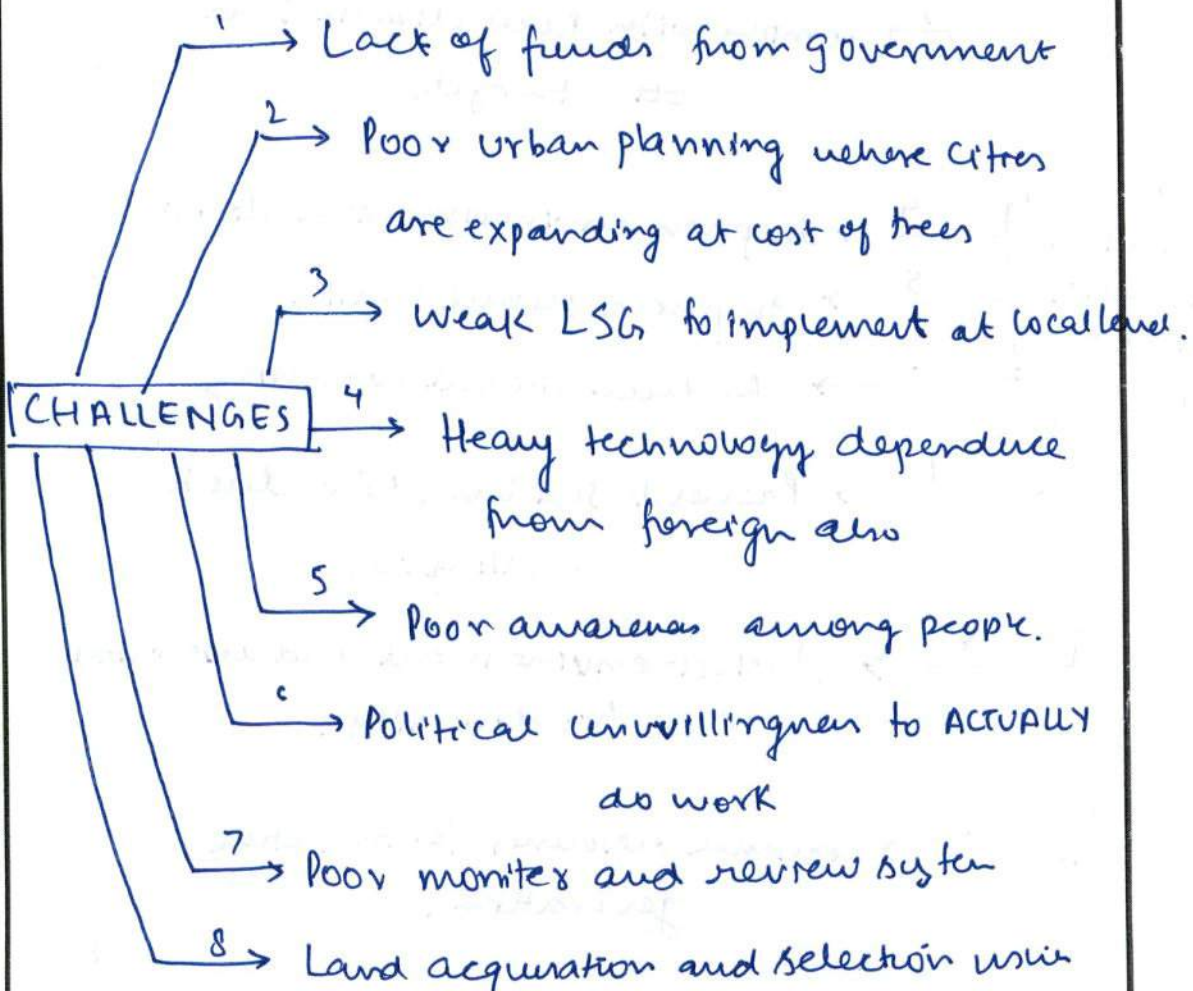 1 → Lack of funds from government
2 → Poor urban planning where cities
are expanding at cost of trees
3 → Weak LSG to implement at local level.
CHALLENGES
4 → Heavy technology dependence
from foreign also
5 → Poor awareness among people.
6 → Political unwillingness to ACTUALLY
do work
7 → Poor moniter and review system
8 → Land acquisation and selection